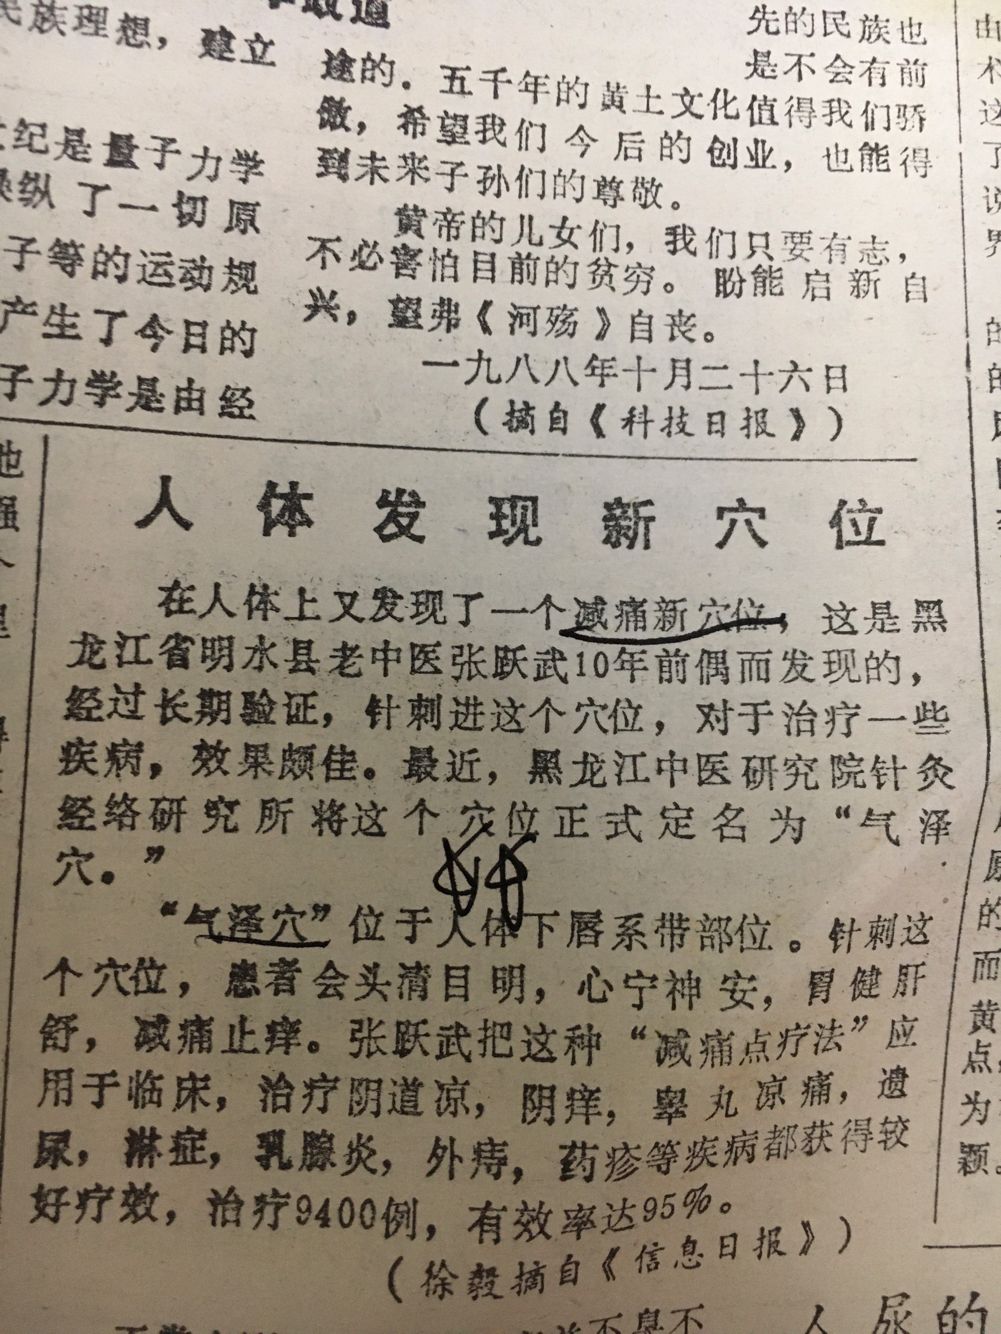 民族理想，建立
世纪是量子力学
操纵了一切原
子等的运动规
产生了今日的
子力学是由经
先的民族也
是不会有前
途的．五千年的黄土文化值得我们骄
傲，希望我们今后的创业，也能得
到未来子孙们的尊敬。
黄帝的儿女们，我们只要有志，
不必害怕目前的贫穷。盼能启新自
兴，望弗《河殇》自丧。
一九八八年十月二十六日
（摘自《科技日报》）
人体发现新穴位
在人体上又发现了一个减痛新穴位，这是黑
龙江省明水县老中医张跃武10年前偶而发现的，
经过长期验证，针刺进这个穴位，对于治疗一些
疾病，效果颇佳。最近，黑龙江中医研究院针灸
经络研究所将这个穴位正式定名为“气泽
穴。”
“气泽穴”位于人体下唇系带部位。针刺这
个穴位，患者会头清目明，心宁神安，胃健肝
舒，减痛止痒。张跃武把这种“减痛点疗法”应
用于临床，治疗阴道凉，阴痒，睾丸凉痛，遗
尿，淋症，乳腺炎，外痔，药疹等疾病都获得较
好疗效，治疗9400例，有效率达95%。
（徐毅摘自《信息日报》）
人尿的
由
术
这
了
说
界
的
的
原
的
而
黄
点，
为
颗。